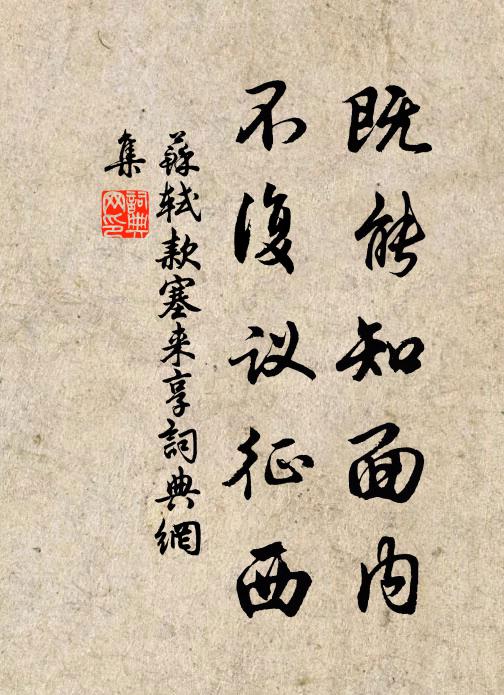 既能知面内
不復议征西
蘇轼款塞来享詞典網
集
詞典网印